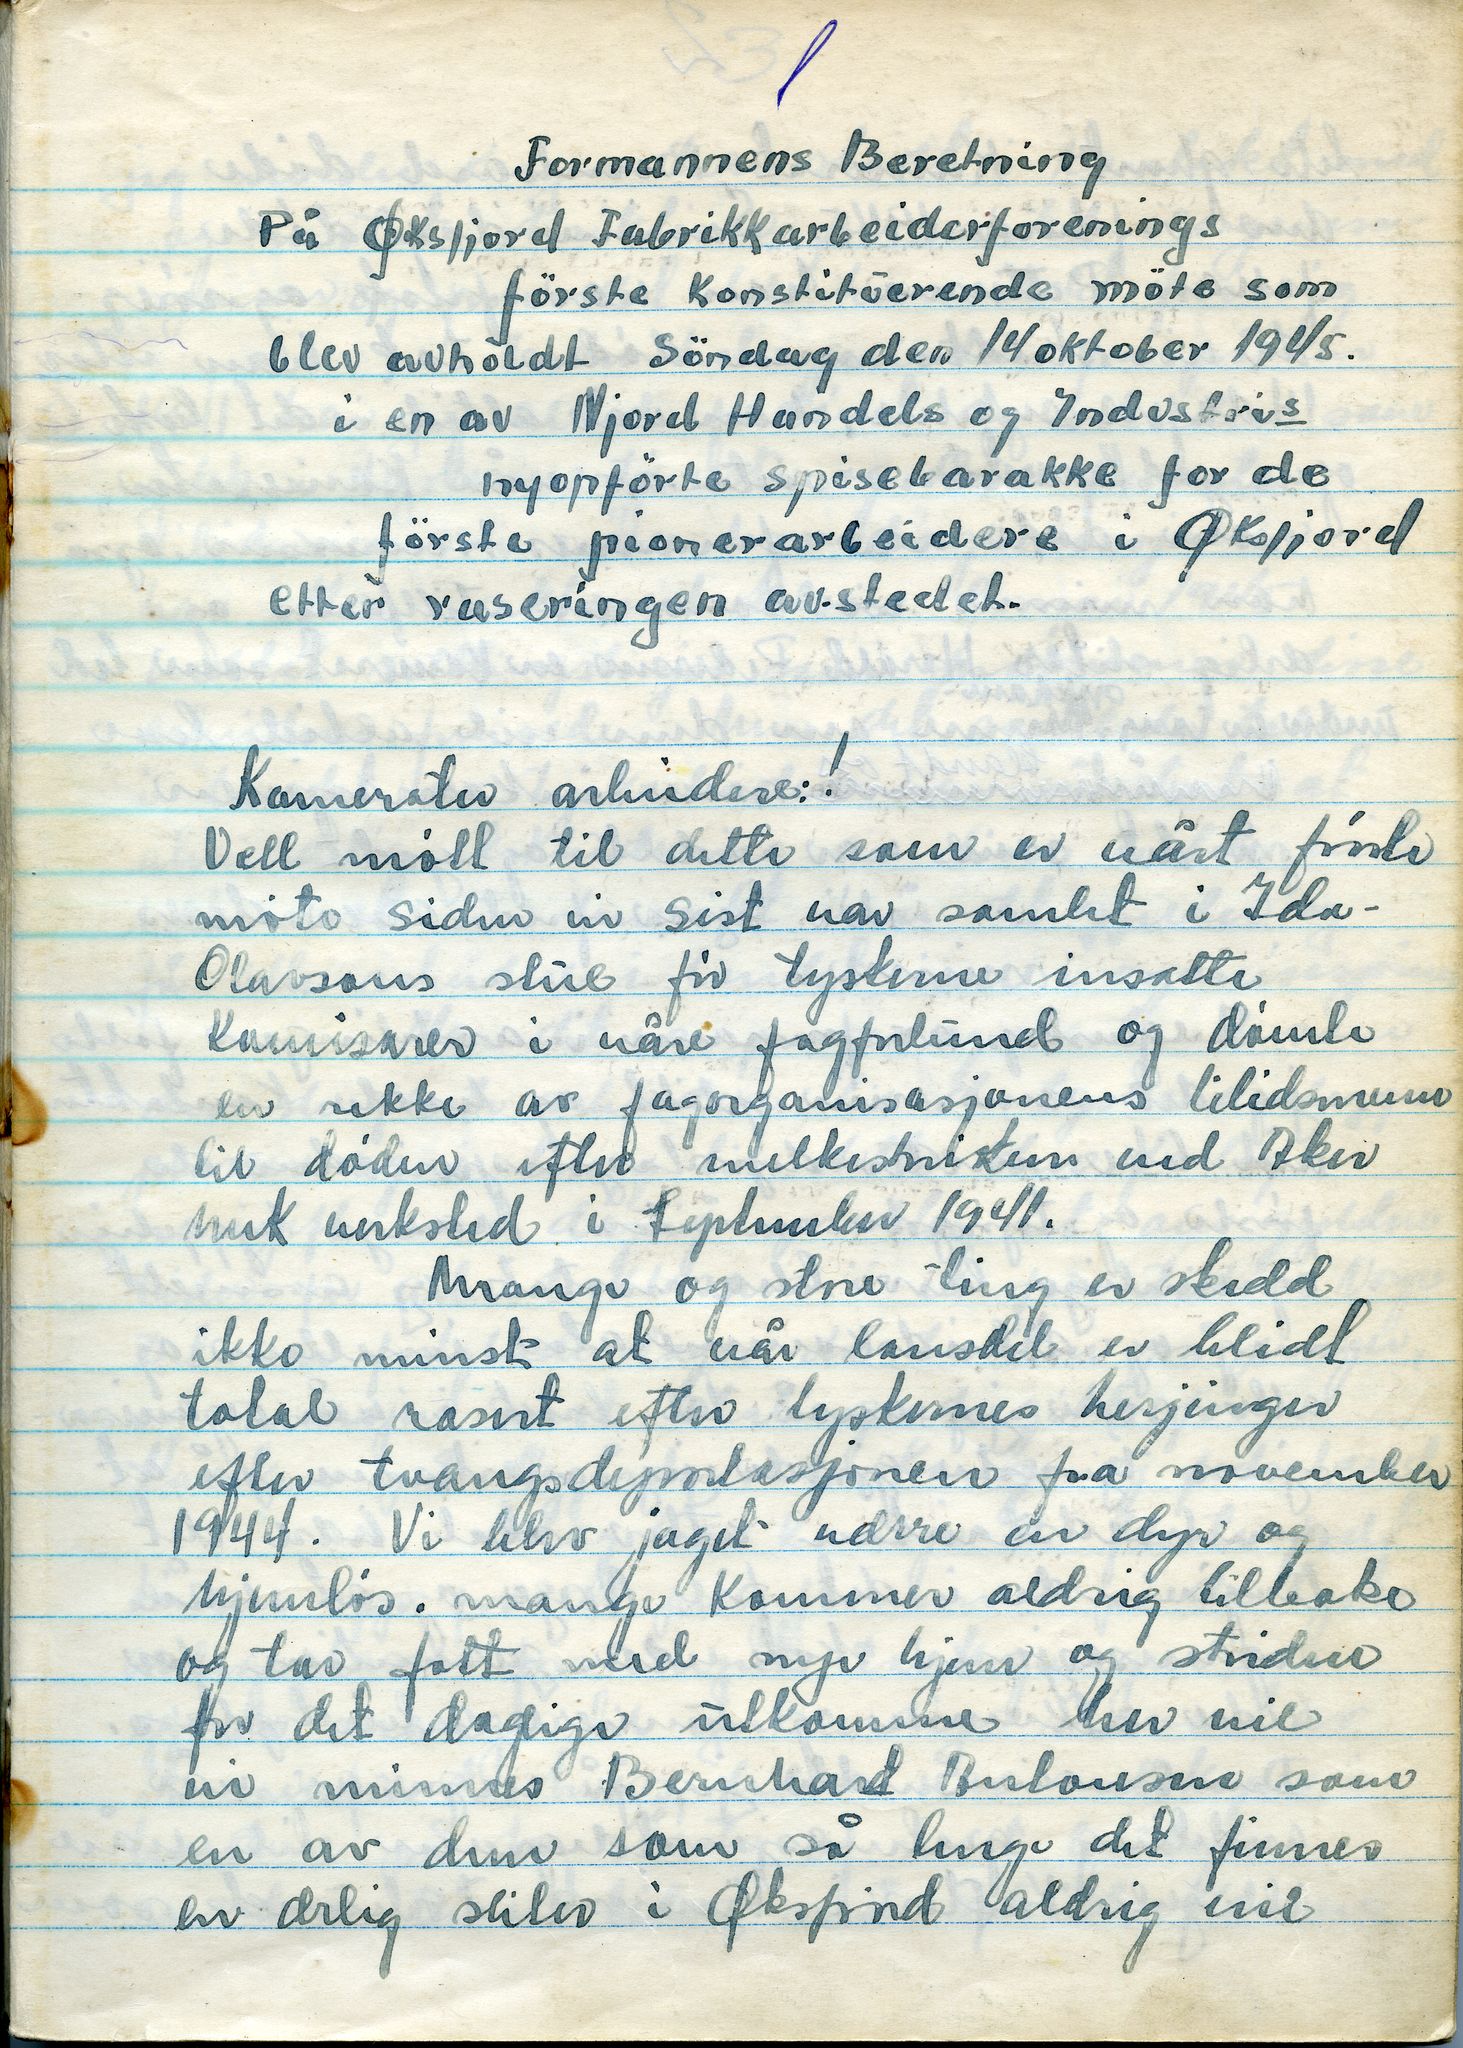 1
Formannens Beretning
På Øksfjord Fabrikkarbeiderforenings
förste Konstitŭerende möte som
blev avholdt Söndag den 14 oktober 1945.
i en av Njord Handels og Industris
nyopförte spisebarakke for de
förste pionerarbeidere i Øksfjord
etter raseringen av stedet.
Kamerater arbeidere:!
Vell mött til dette som er vårt förste
möte siden vi sist var samlet i Ida-
Olavsens stŭe för tyskerne insatte
Komisarer i våre fagforbŭnd og dömte
en rekke av fagorganisasjonens tilidsmenn
til döden efter melkestreiken ved Aker
mek verksted i September 1941.
Mange og store ting er skedd
ikke minst at vår lansdel er blidt
total rasert efter tyskernes herjinger
efter tvangsdeportasjonen fra november
1944. Vi blev jaget værre en dyr og
hjemlös. mange Kommer aldrig tilbake
og tar fatt med nye hjem og striden
for det daglige ŭtkomme her vil
vi minnes Bernhard som
en av dem som så lenge det finnes
en ærlig sliter i Øksfjord aldrig vil